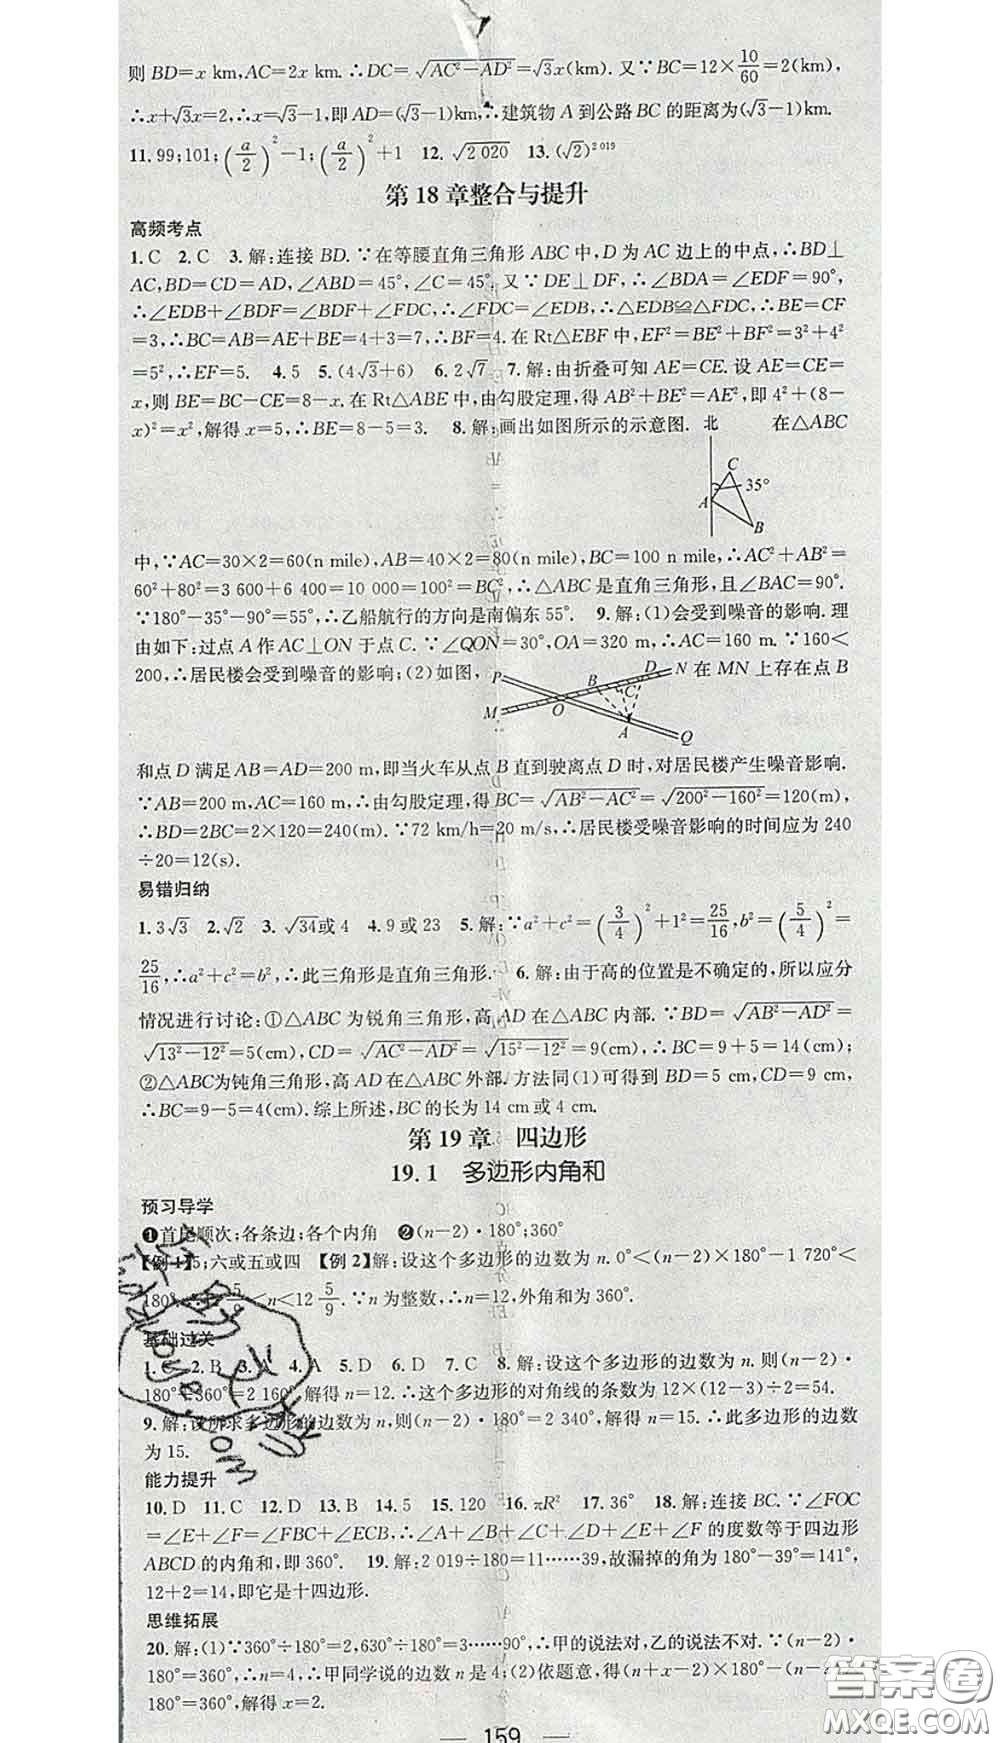 则 BD=x km,AC=2x km.∴DC=√(AC²−AD²)=√3x(km).又∵BC=12×10/60=2(km),
∴x+√3x=2,∴x=√3−1,即 AD=(√3−1)km,∴建筑物 A 到公路 BC 的距离为(√3−1)km.
11.99;101;(a/2)²−1;(a/2)²+1 12.√2 020 13.(√2)²⁰¹⁹
第 18 章整合与提升
高频考点
1.C 2.C 3.解:连接 BD.∵在等腰直角三角形 ABC 中,D 为 AC 边上的中点,∴BD⊥
AC,BD=CD=AD,∠ABD=45°,∠C=45°.又∵DE⊥DF,∴∠BDA=∠EDF=90°,
∴∠EDB+∠BDF=∠BDF+∠FDC,∴∠FDC=∠EDB,∴△EDB≌△FDC,∴BE=CF
=3,∴BC=AB=AE+BE=4+3=7,∴BF=4.在 Rt△EBF 中,EF²=BE²+BF²=3²+4²
=5²,∴EF=5. 4.5 5.(4√3+6) 6.2√7 7.解:由折叠可知 AE=CE.设 AE=CE=
x,则 BE=BC−CE=8−x.在 Rt△ABE 中,由勾股定理,得 AB²+BE²=AE²,即 4²+(8−
x)²=x²,解得 x=5,∴BE=8−5=3. 8.解:画出如图所示的示意图. 北 在△ABC
C
35°
A
B
中,∵AC=30×2=60(n mile),AB=40×2=80(n mile),BC=100 n mile,∴AC²+AB²=
60²+80²=3 600+6 400=10 000=100²=BC²,∴△ABC 是直角三角形,且∠BAC=90°.
∵180°−35°−90°=55°,∴乙船航行的方向是南偏东 55°. 9.解:(1)会受到噪音的影响.理
由如下:过点 A 作 AC⊥ON 于点 C.∵∠QON=30°,OA=320 m,∴AC=160 m.∵160<
200,∴居民楼会受到噪音的影响;(2)如图, P B D N 在 MN 上存在点 B
C
M O A Q
和点 D 满足 AB=AD=200 m,即当火车从点 B 直到驶离点 D 时,对居民楼产生噪音影响.
∵AB=200 m,AC=160 m,∴由勾股定理,得 BC=√(AB²−AC²)=√(200²−160²)=120(m),
∴BD=2BC=2×120=240(m).∵72 km/h=20 m/s,∴居民楼受噪音影响的时间应为 240
÷20=12(s).
易错归纳
1.3√3 2.√2 3.√34或 4 4.9 或 23 5.解:∵a²+c²=(3/4)²+1²=25/16,b²=(5/4)²=
25/16,∴a²+c²=b²,∴此三角形是直角三角形. 6.解:由于高的位置是不确定的,所以应分
情况进行讨论:①△ABC 为锐角三角形,高 AD 在△ABC 内部.∵BD=√(AB²−AD²)=
√(13²−12²)=5(cm),CD=√(AC²−AD²)=√(15²−12²)=9(cm),∴BC=9+5=14(cm);
②△ABC为钝角三角形,高 AD在△ABC外部.方法同(1)可得到 BD=5 cm,CD=9 cm,
∴BC=9−5=4(cm).综上所述,BC的长为 14 cm或 4 cm.
第 19 章 四边形
19.1 多边形内角和
预习导学
❶首尾顺次;各条边;各个内角 ❷(n−2)·180°;360°
【例 1】5;六或五或四 【例 2】解:设这个多边形的边数为 n.0°<(n−2)×180°−1 720°<
180°,∴ 5/9<n<12 5/9.∵n 为整数,∴n=12,外角和为 360°.
基础过关
1.C 2.B 3.A 4.A 5.D 6.D 7.C 8.解:设这个多边形的边数为 n.则(n−2)·
180°+360°=2 160°,解得 n=12.∴这个多边形的对角线的条数为 12×(12−3)÷2=54.
9.解:设所求多边形的边数为 n,则(n−2)·180°=2 340°,解得 n=15.∴此多边形的边数
为 15.
能力提升
10.D 11.C 12.D 13.B 14.5 15.120 16.πR² 17.36° 18.解:连接 BC.∵∠FOC
=∠E+∠F=∠FBC+∠ECB,∴∠A+∠B+∠C+∠D+∠E+∠F 的度数等于四边形
ABCD 的内角和,即 360°. 19.解:2 019÷180=11……39,故漏掉的角为 180°−39°=141°,
12+2=14,即它是十四边形.
思维拓展
20.解:(1)∵360°÷180°=2,630°÷180°=3……90°,∴甲的说法对,乙的说法不对.∵(n−2)·
180°=360°,∴n=4,∴甲同学说的边数 n 是 4;(2)依题意,得(n+x−2)×180°−(n−2)×
180°=360°,解得 x=2.
159
答案圈
MXQE.COM